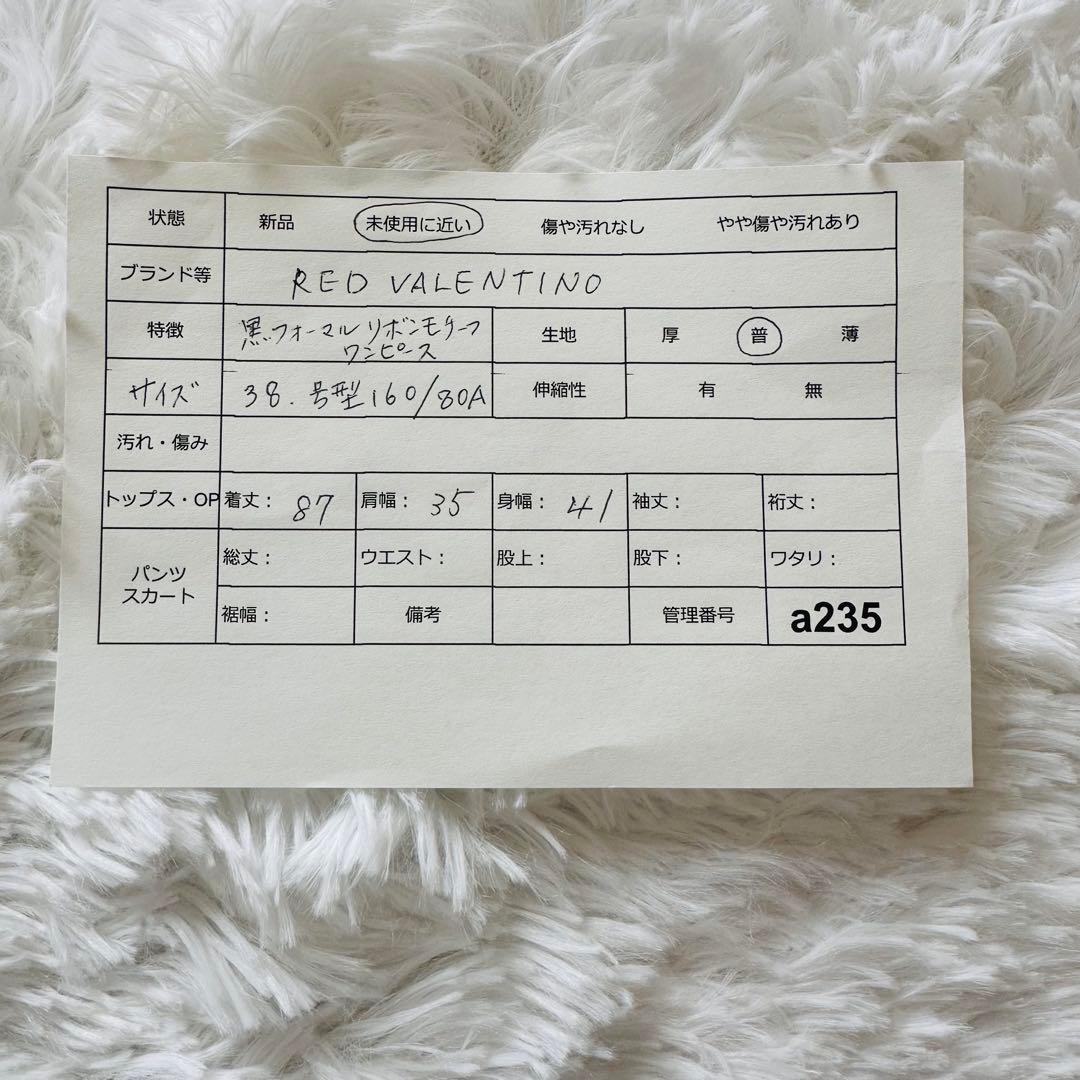 状態 新品 未使用に近い 傷や汚れなし やや傷や汚れあり
ブランド等 RED VALENTINO
特徴 黒フォーマルリボンモチーフ 生地 厚 普 薄
ワンピース
サイズ 38. 号型160/80A 伸縮性 有 無
汚れ・傷み
トップス・OP 着丈: 87 肩幅: 35 身幅: 41 袖丈: 裄丈:
パンツ 総丈: ウエスト: 股上: 股下: ワタリ:
スカート
裾幅: 備考 管理番号 a235